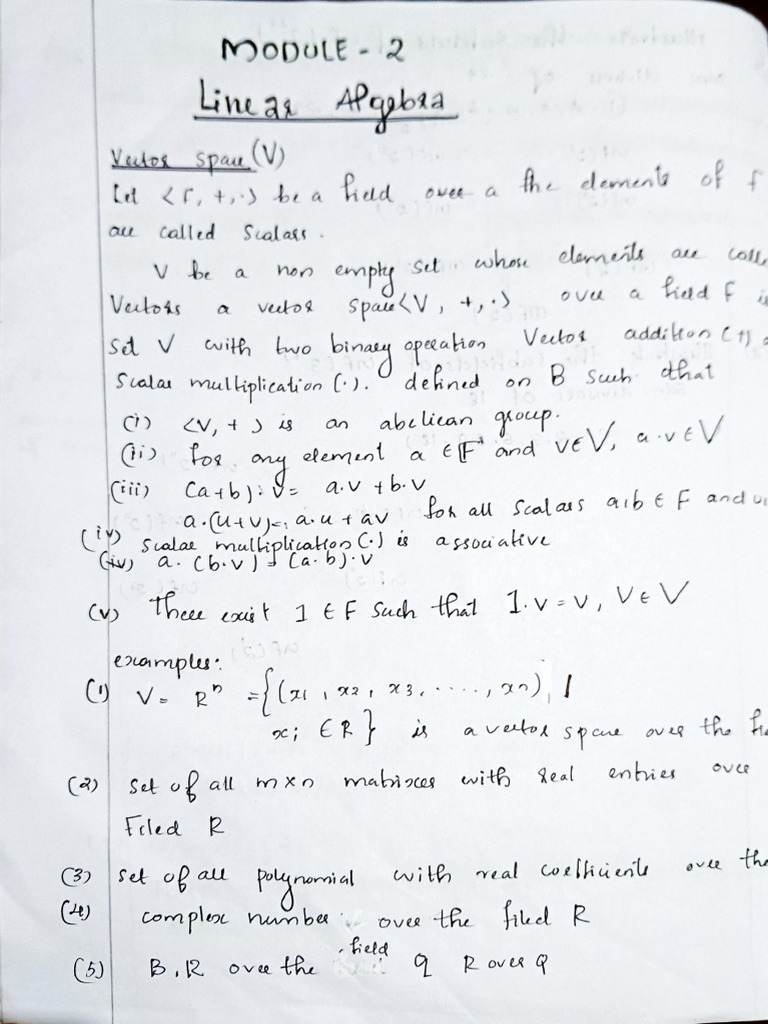 MODULE - 2
Linear Algebra
Vector space (V)
Let <F, +, ·> be a field over a the elements of F
are called Scalars.
V be a non empty set whose elements are call
Vectors a vector space <V, +, ·> over a field F is
set V with two binary operation Vector addition (+)
Scalar multiplication (·). defined on B such that
(i) <V, +> is an abelican group.
(ii) for any element a ∈ F and v∈V, a·v∈V
(iii) (a+b)·v = a·v + b·v
a·(u+v) = a·u + av for all scalars a,b ∈ F and
(iv) Scalar multiplication (·) is associative
(iv) a·(b·v) = (a·b)·v
(v) There exist 1 ∈ F such that 1·v = v, V ∈ V
examples:
(1) V = Rⁿ = {(x1, x2, x3, ....., xn), |
xi ∈ R} is a vector space over the
(2) set of all m×n matrixces with real entries over
Filed R
(3) set of all polynomial with real coefficients over the
(4) complex number over the filed R
(5) B.R over the field q R over Q